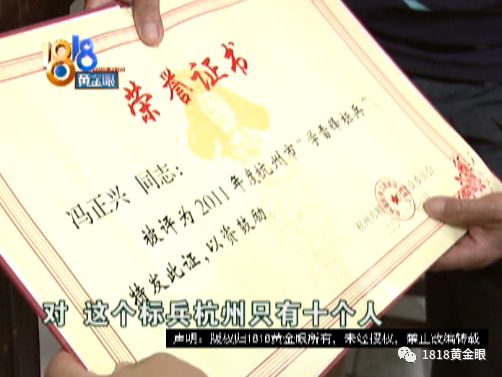 1818
黄金眼
荣誉证书
冯正兴 同志:
被评为2011年度杭州市"学雷锋标兵"
特发此证,以资鼓励。
对 这个标兵杭州只有十个人
声明:版权归1818黄金眼所有,未经授权,禁止改编转载
1818黄金眼